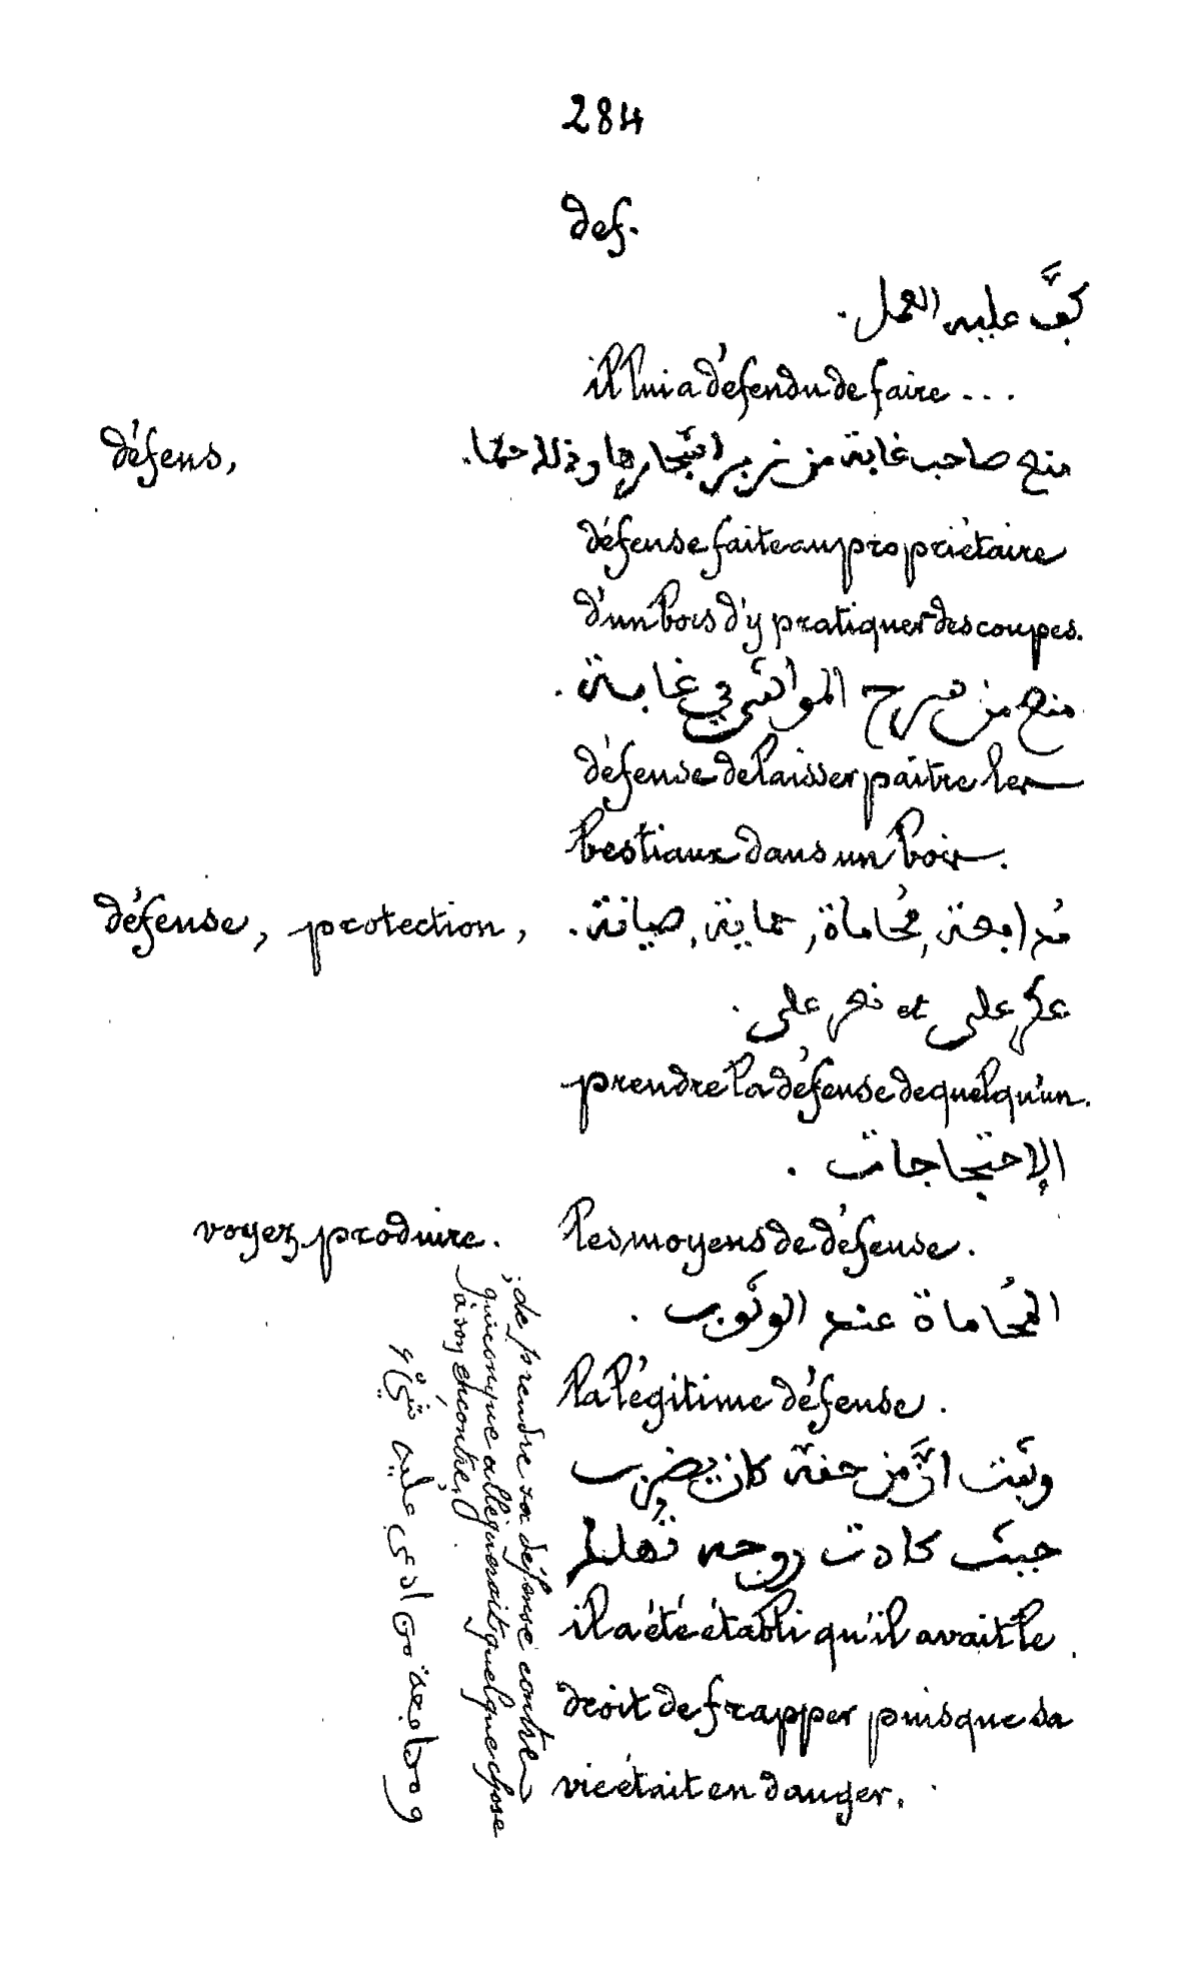 284
def.
كفَّ عليه العمل.
il lui a défendu de faire ...
défens, منع صاحب غابة من زبر اشجارها وذلك حتما.
défense faite au propriétaire
d'un bois d'y pratiquer des coupes.
منع من سرح المواشي في غابة.
défense de laisser paître les
bestiaux dans un bois.
défense, protection, مُدافعة, مُحاماة, حماية, صيانة.
على et على.
prendre la défense de quelqu'un.
الاحتجاجات.
voyez produire. les moyens de défense.
المُحاماة عند الوثوب.
la légitime défense.
وثبت انَّ من حقه كان يضرب
حيث كادت روحه
il a été établi qu'il avait le
droit de frapper puisque sa
vie était en danger.
; de prendre sa défense contre
quiconque alléguerait quelque chose
à son encontre,
ومدافعة من ادعى عليه شيْء